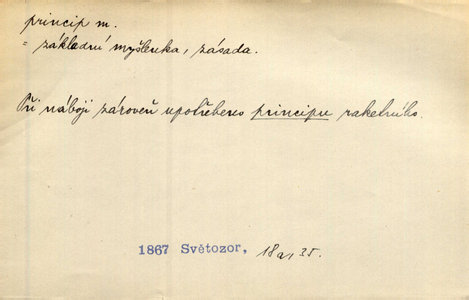 princip m.
= základní myšlenka, zásada.
Při náboji zároveň upotřebeno principu raketního.
1867 Světozor, 18a, 35.